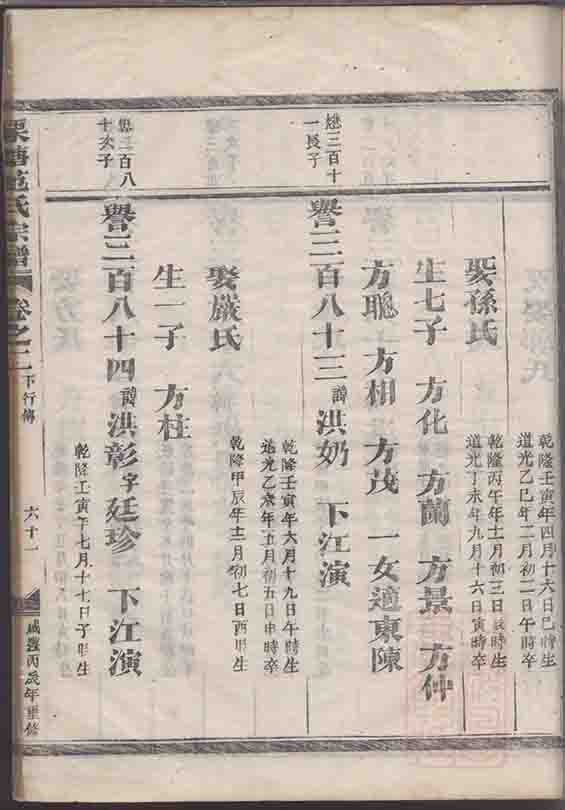 乾隆壬寅年四月十六日巳時生
道光乙巳年二月初一日午時卒
娶孫氏
乾隆丙午年十二月初三日辰時生
道光丁未年九月十六日寅時卒
生七子 方化 方蘭 方景 方仲
方聰 方相 方茂 一女適東陳
燈三百十
一長子
譽三百八十三 諱洪奶 下江演
乾隆壬寅年六月十九日午時生
道光乙亥年五月初五日申時卒
娶嚴氏
乾隆甲辰年十二月初七日酉時生
生一子 方柱
三百八
十次子
譽三百八十四 諱洪彰字廷珍 下江演
乾隆壬寅年七月十七日子時生
氏宗譜 卷之三 下行傳 六十一 咸豐丙辰年重修